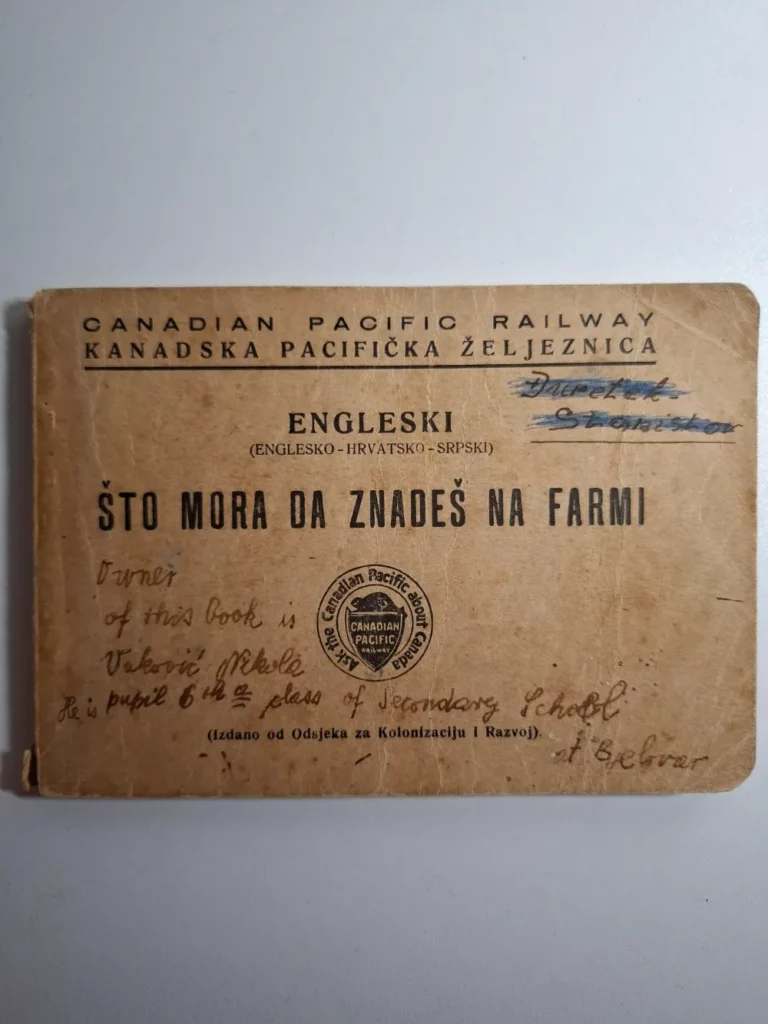 CANADIAN PACIFIC RAILWAY
KANADSKA PACIFIČKA ŽELJEZNICA
ENGLESKI
(ENGLESKO-HRVATSKO-SRPSKI)
ŠTO MORA DA ZNADEŠ NA FARMI
Owner
of this book is
Vuković Nikola
He is pupil 6th a class of Secondary School
at Bjelovar
Ask the Canadian Pacific about Canada
CANADIAN
PACIFIC
RAILWAY
(izdano od Odsjeka za Kolonizaciju i Razvoj).